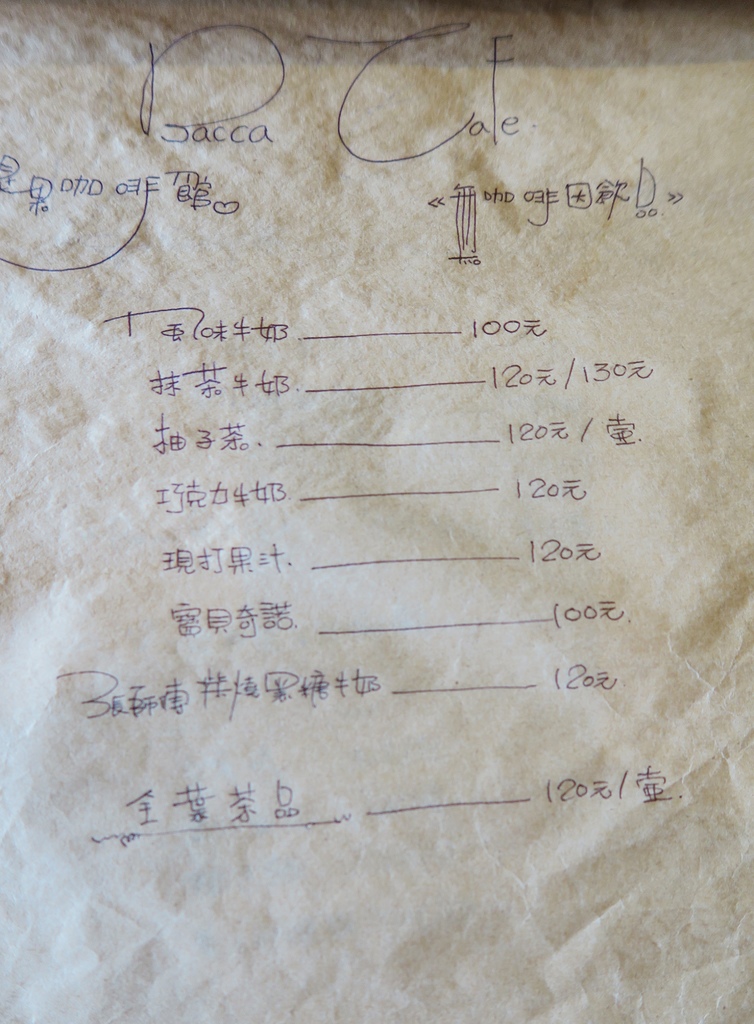 Bacca Cafe.
是果咖啡館
《無咖啡因飲品》
風味牛奶. 100元
抹茶牛奶. 120元/130元
柚子茶. 120元/壺.
巧克力牛奶. 120元
現打果汁. 120元
寶貝奇諾. 100元.
張師傅柴燒黑糖牛奶 120元.
全葉茶品 120元/壺.